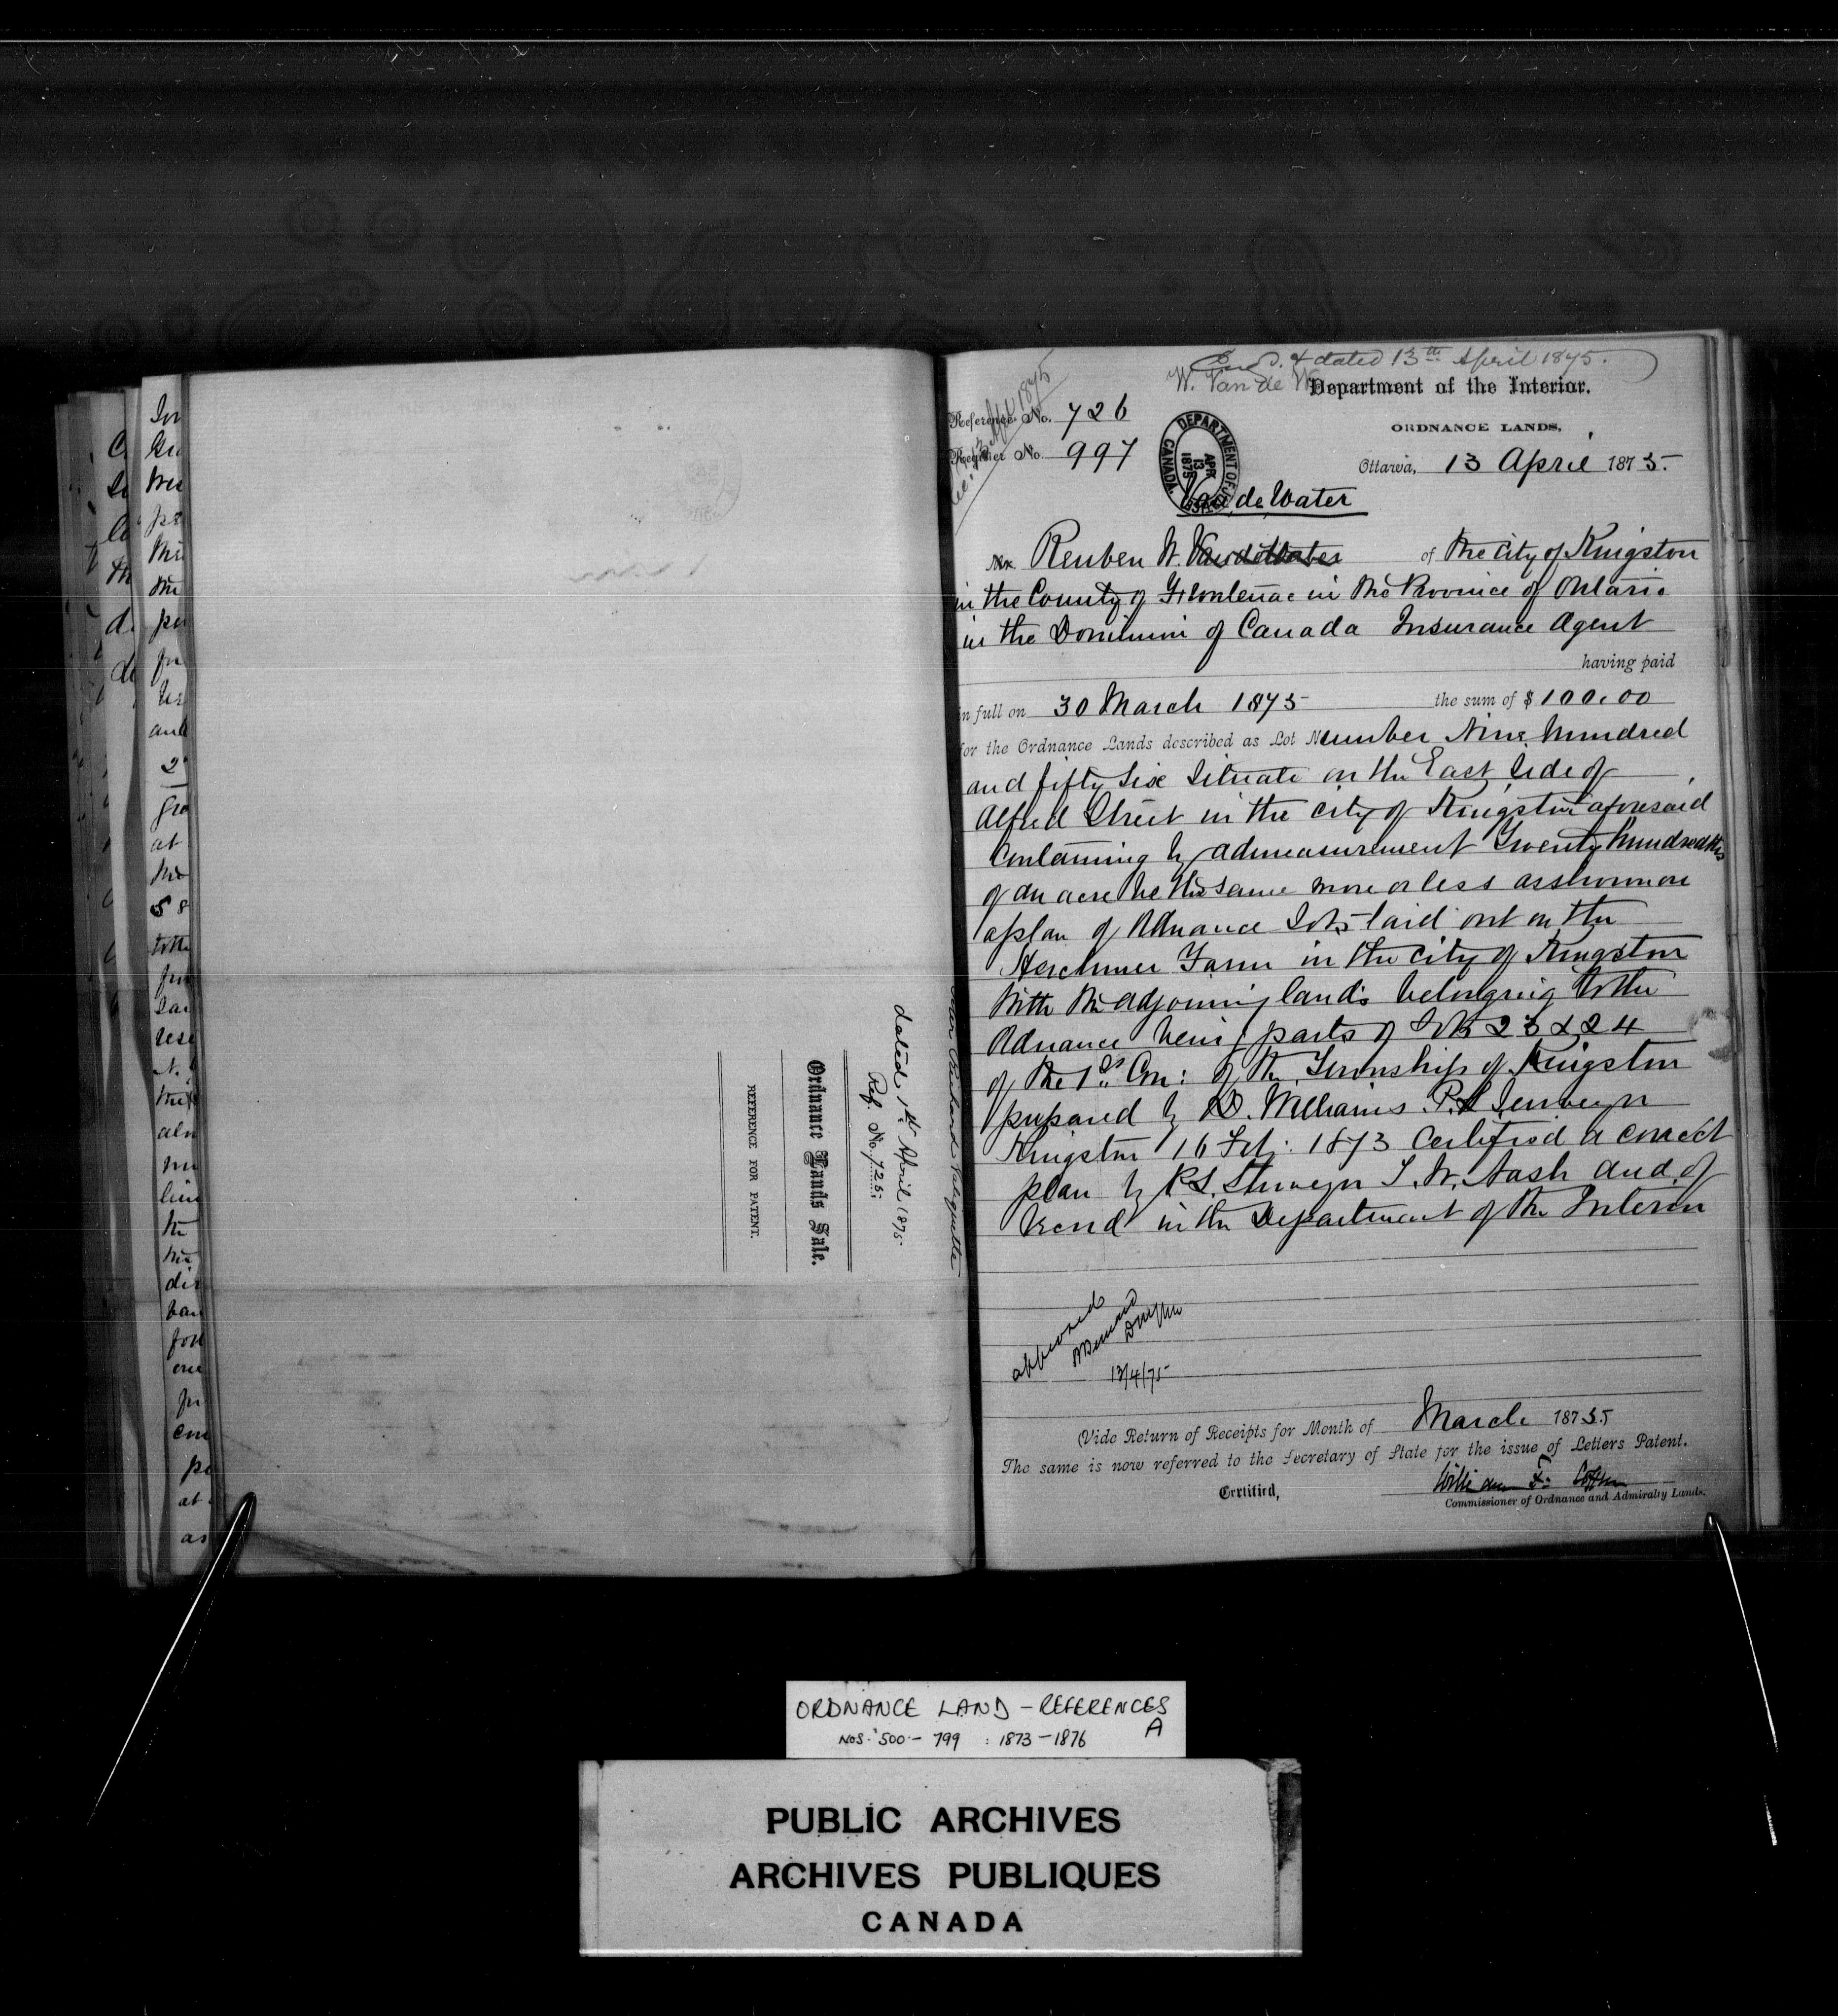 dated 1st April 1875
Ref. No. 725
Ordnance Lands Sale.
REFERENCE FOR PATENT.
& dated 13th April 1875.
W. Van de W
Department of the Interior.
Reference No. 726
Register No. 997
ORDNANCE LANDS,
Ottawa, 13 April 1875.
DEPARTMENT OF JUSTICE CANADA
APR 13 1875
Van de Water
Mr. Reuben W. Vandewater of the City of Kingston
in the County of Frontenac in the Province of Ontario
in the Dominion of Canada Insurance Agent
having paid
in full on 30 March 1875 the sum of $ 100.00
for the Ordnance Lands described as Lot Number Nine hundred
and fifty six situate on the East side of
Alfred Street in the city of Kingston aforesaid
Containing by admeasurement Twenty hundredths
of an acre be the same more or less as shown on
a plan of Ordnance Lots laid out on the
Herchmer Farm in the city of Kingston
with the adjoining lands belonging to the
Ordnance being parts of Lots 23 & 24
of the 1st Con: of the Township of Kingston
prepared by D. Williams P. L. Surveyor
Kingston 16 Feb: 1873 Certified a correct
plan by P.L. Surveyor T. W. Nash and of
record in the Department of the Interior
approved
13/4/75
(Vide Return of Receipts for Month of March 1875)
The same is now referred to the Secretary of State for the issue of Letters Patent.
Certified,
William F. Coffin
Commissioner of Ordnance and Admiralty Lands.
ORDNANCE LAND - REFERENCES
NOS. 500 - 799 : 1873 - 1876 A
PUBLIC ARCHIVES
ARCHIVES PUBLIQUES
CANADA